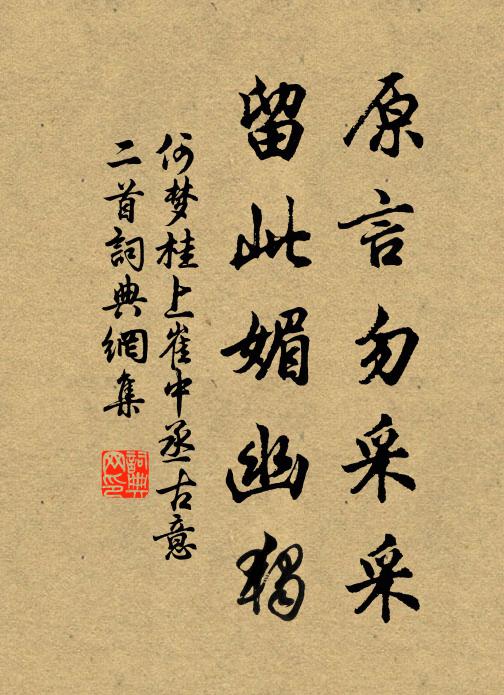 原言勿采采
留此媚幽独
何梦桂上崔中丞古意
二首詞典網集
詞典
网印